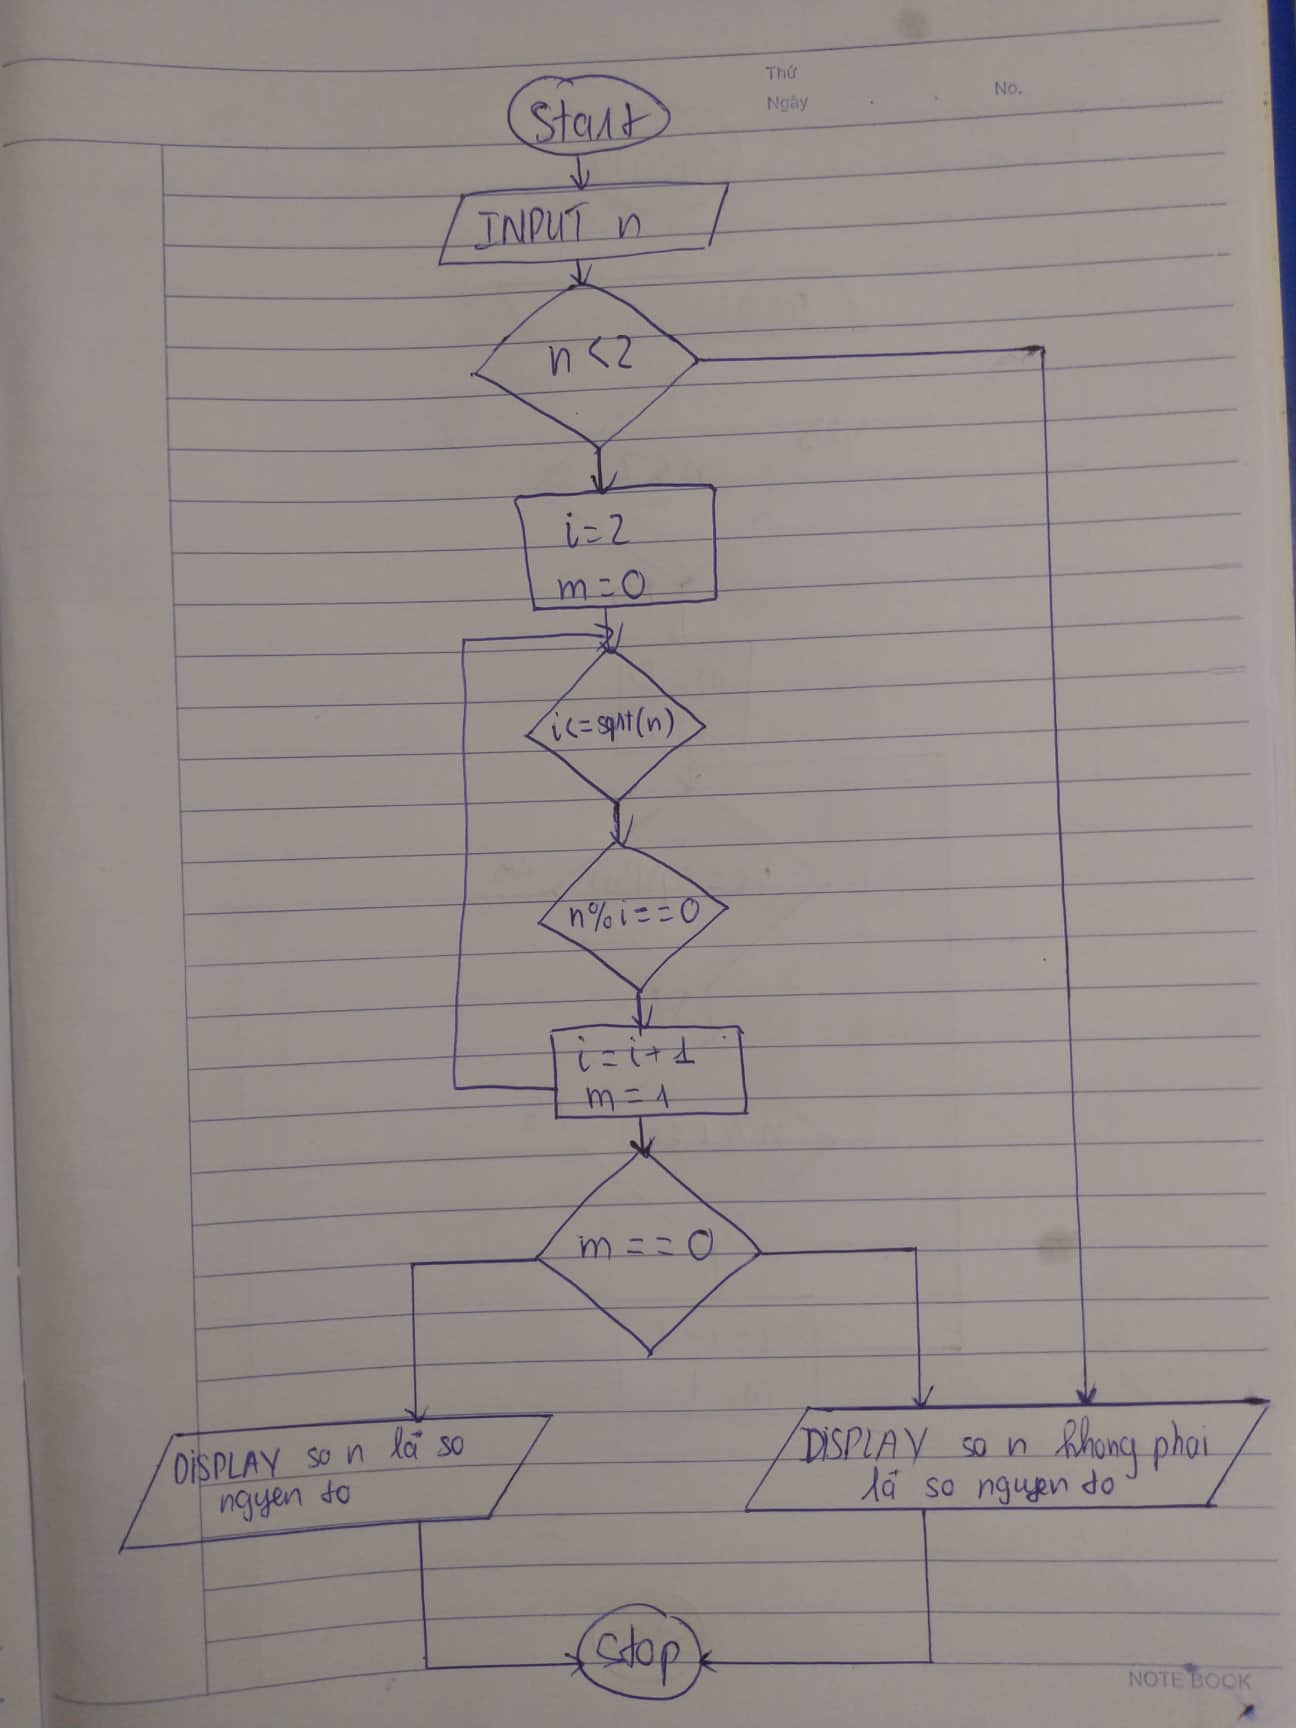 Thứ
Ngày
No.
Start
INPUT n
n<2
i=2
m=0
i<=sqrt(n)
n%i==0
i=i+1
m=1
m==0
DISPLAY so n là so
ngyen to
DISPLAY so n khong phai
là so nguyen to
Stop
NOTE BOOK